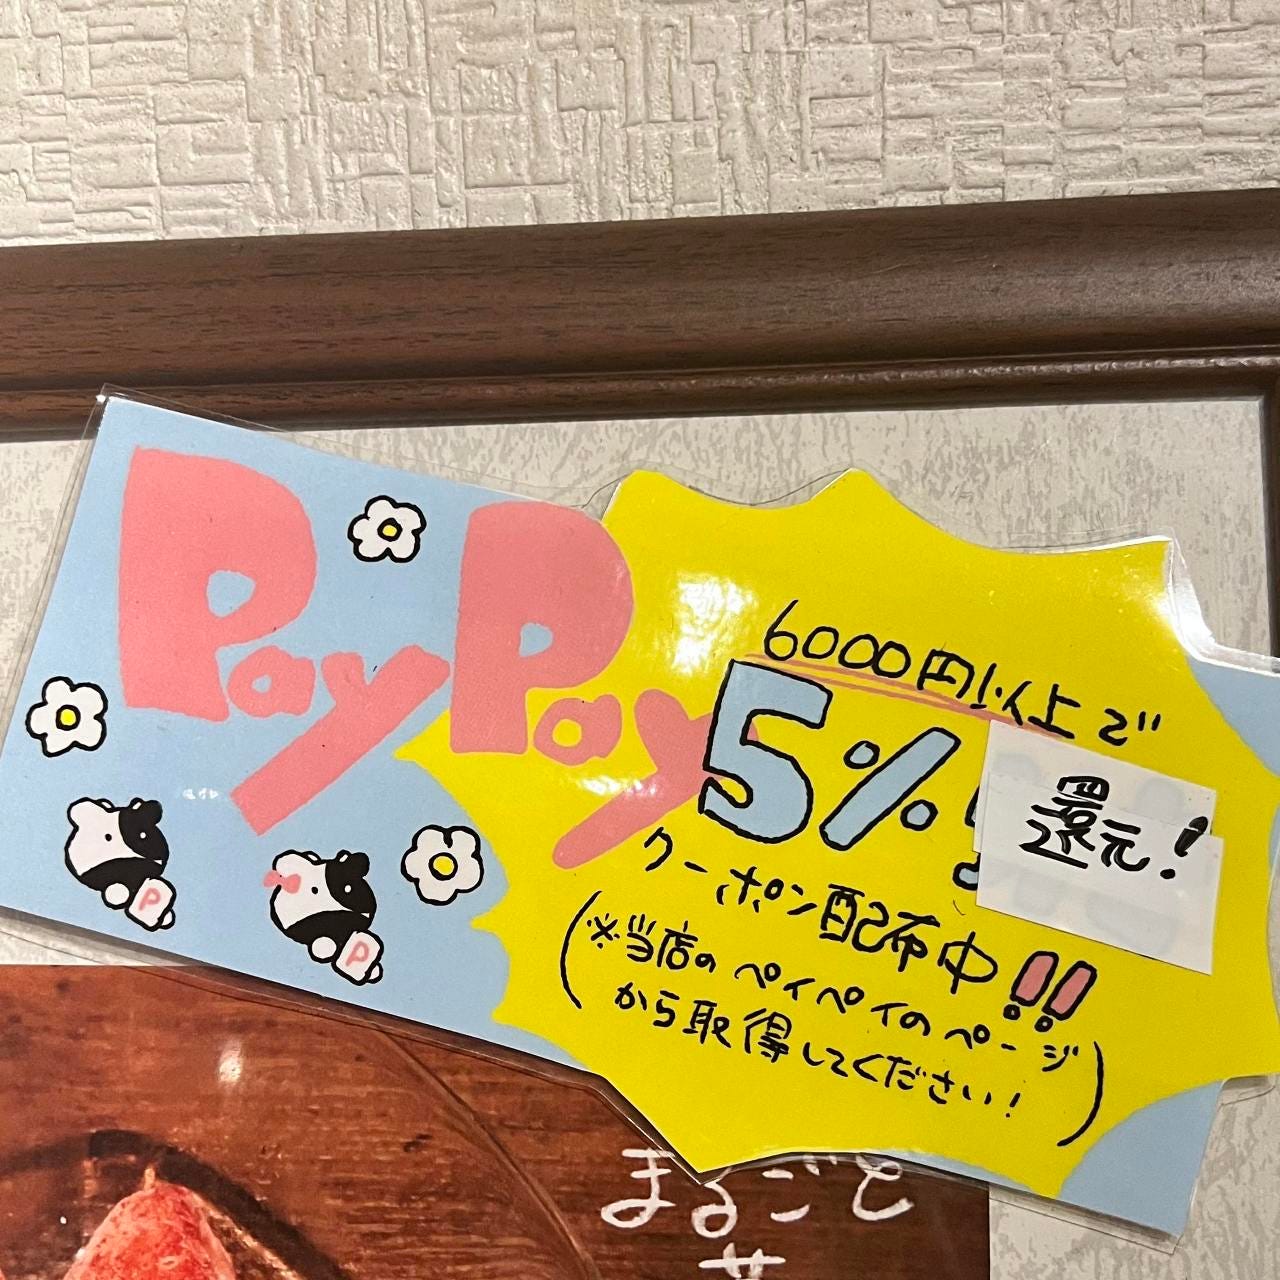 PayPay
6000円以上で
5%
還元!
クーポン配布中!!
(※当店のペイペイのページ
から取得してください!)
P
P
まるごと